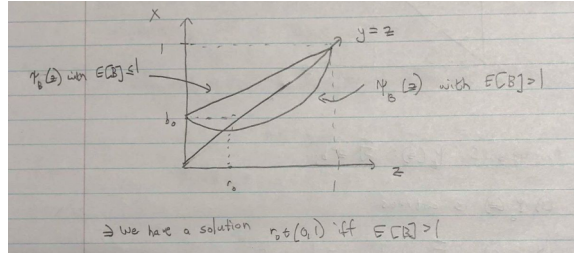 X
1
y = z
ψ_B(z) with E[B]≤1
ψ_B(z) with E[B]>1
b₀
r₀
1
z
∋ we have a solution r₀ ∈ (0,1) iff E[B] >1